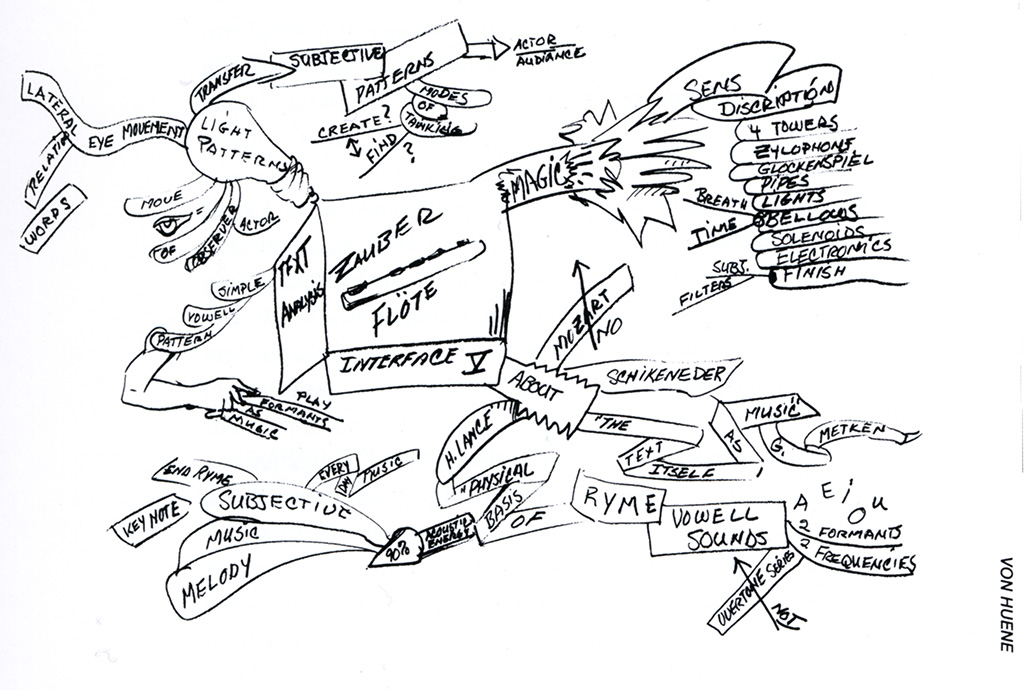 LATERAL
EYE MOVEMENT
RELATION
WORDS
TRANSFER
SUBJECTIVE
PATTERNS
ACTOR
AUDIANCE
CREATE?
FIND
?
MODES
OF
LIGHT
PATTERNS
MOVE
=
OF
OBSERVER
ACTOR
SIMPLE
VOWELL
PATTERN
PLAY
FORMANTS
AS
MUSIC
TEXT
ANALYSIS
ZAUBER
FLÖTE
INTERFACE V
MAGIC
SENS
DISCRIPTION
4 TOWERS
ZYLOPHONE
GLOCKENSPIEL
PIPES
LIGHTS
BELLOWS
SOLENOIDS
ELECTRONICS
FINISH
BREATH
TIME
SUBJ.
FILTERS
MOZART
NO
ABOUT
SCHIKENEDER
"THE
TEXT
ITSELF
AS
MUSIC"
G.
METKEN
H. LANCE
"PHYSICAL
BASIS
OF
RYME
VOWELL
SOUNDS
A E i O U
2 FORMANTS
2 FREQUENCIES
OVERTONE SERIES
NOT
90%
ACOUSTIC
ENERGY
END RYME
KEY NOTE
SUBJECTIVE
EVERY
DAY
MUSIC
MUSIC
MELODY
VON HUENE